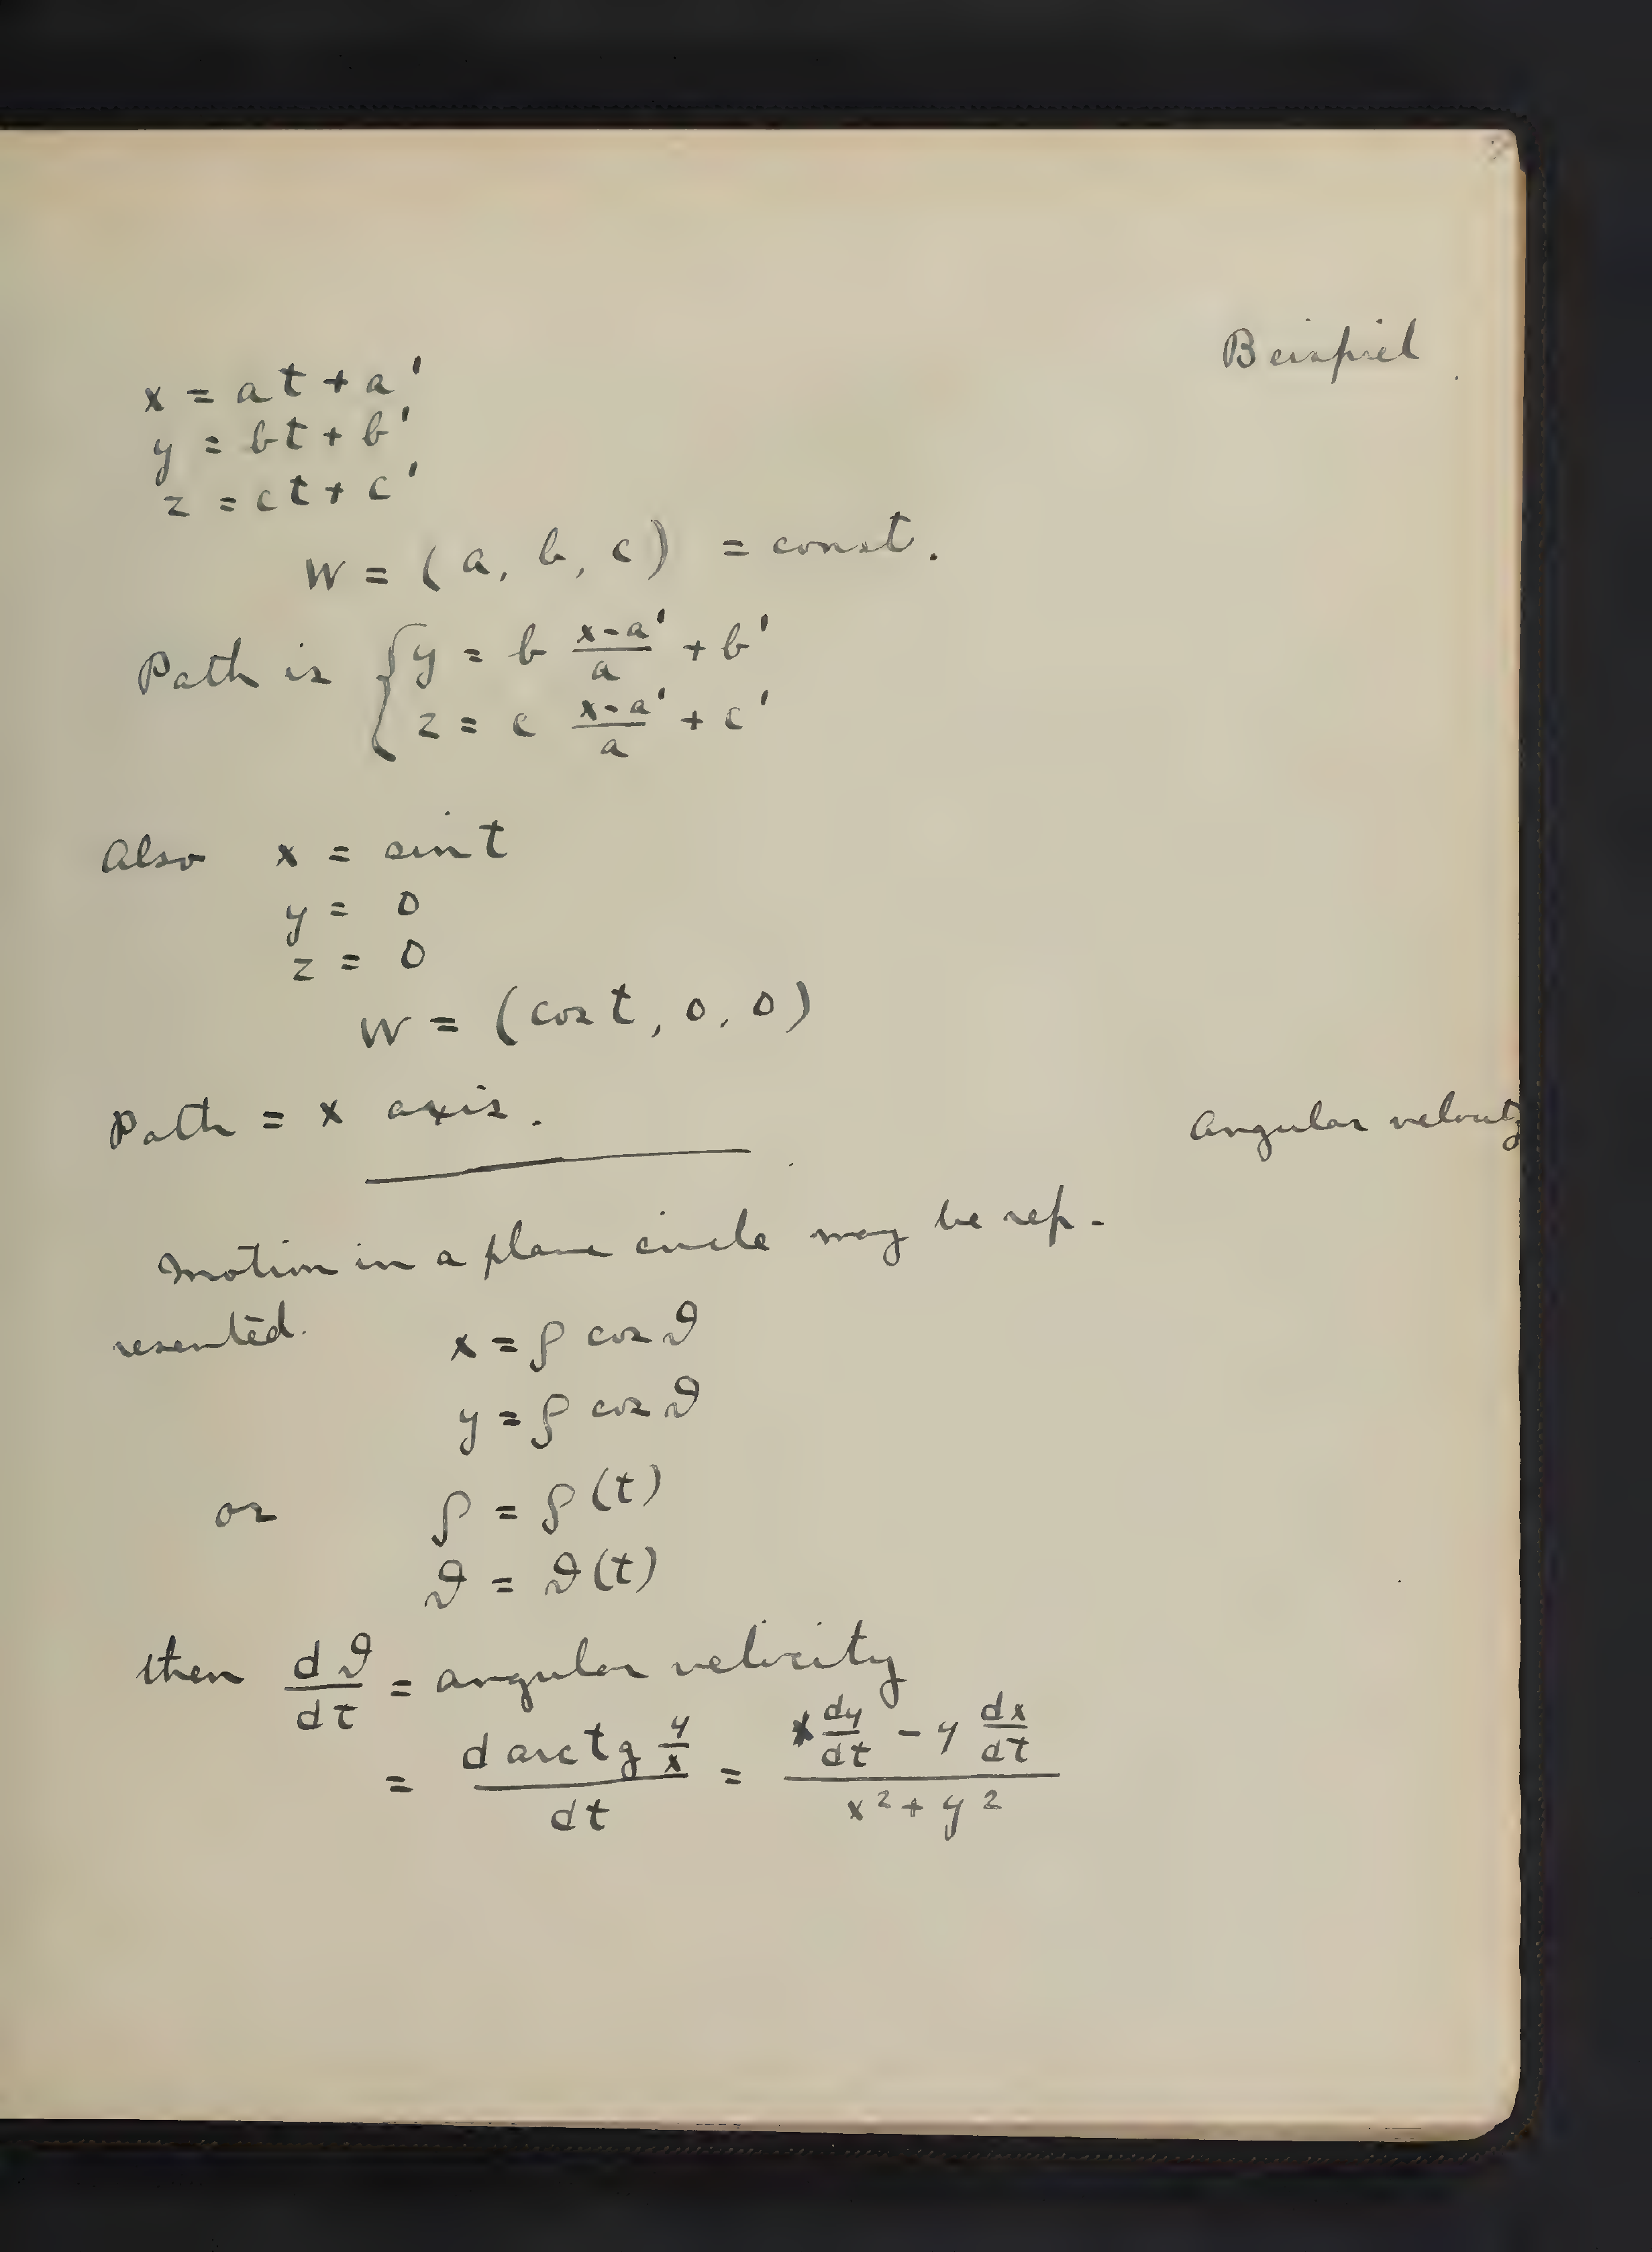 Beispiel
x = at + a'
y = bt + b'
z = ct + c'
W = (a, b, c) = const.
Path is { y = b (x-a')/a + b'
z = c (x-a')/a + c'
Also x = sin t
y = 0
z = 0
W = (cos t, 0, 0)
Path = x axis.
Angular velocity
Motion in a plane circle may be rep-
resented.
x = ρ cos ϑ
y = ρ cos ϑ
or ρ = ρ(t)
ϑ = ϑ(t)
then dϑ/dt = angular velocity
= d arctg y/x / dt = (x dy/dt - y dx/dt) / (x² + y²)